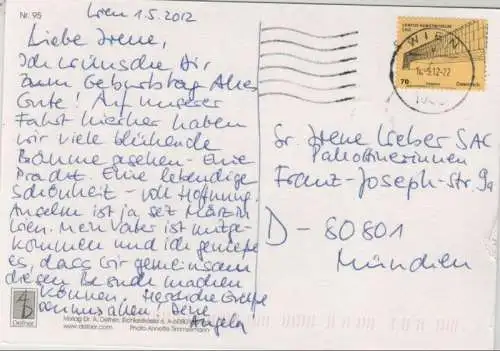 Nr. 95
Wien 1.5.2012
Liebe Irene,
Ich wünsche Dir
zum Geburtstag Alles
Gute! Auf unserer
Fahrt hierher haben
wir viele blühende
Bäume gesehen - Eine
Pracht. Eine lebendige
Schönheit - voll Hoffnung.
Anselm ist ja seit März in
Wien. Mein Vater ist mitge-
kommen und ich genieße
es, dass wir gemeinsam
diesen Besuch machen
können. Herzliche Grüße
von uns allen, Deine
Angela
Defner
Verlag Dr. A. Defner,
www.defner.com Photo Annette Timmermann
WIEN
.5.12-22
70
Österreich
Sr. Irene Weber SAC
Pallottinerinnen
Franz-Joseph-Str. 9a
D - 80801
München